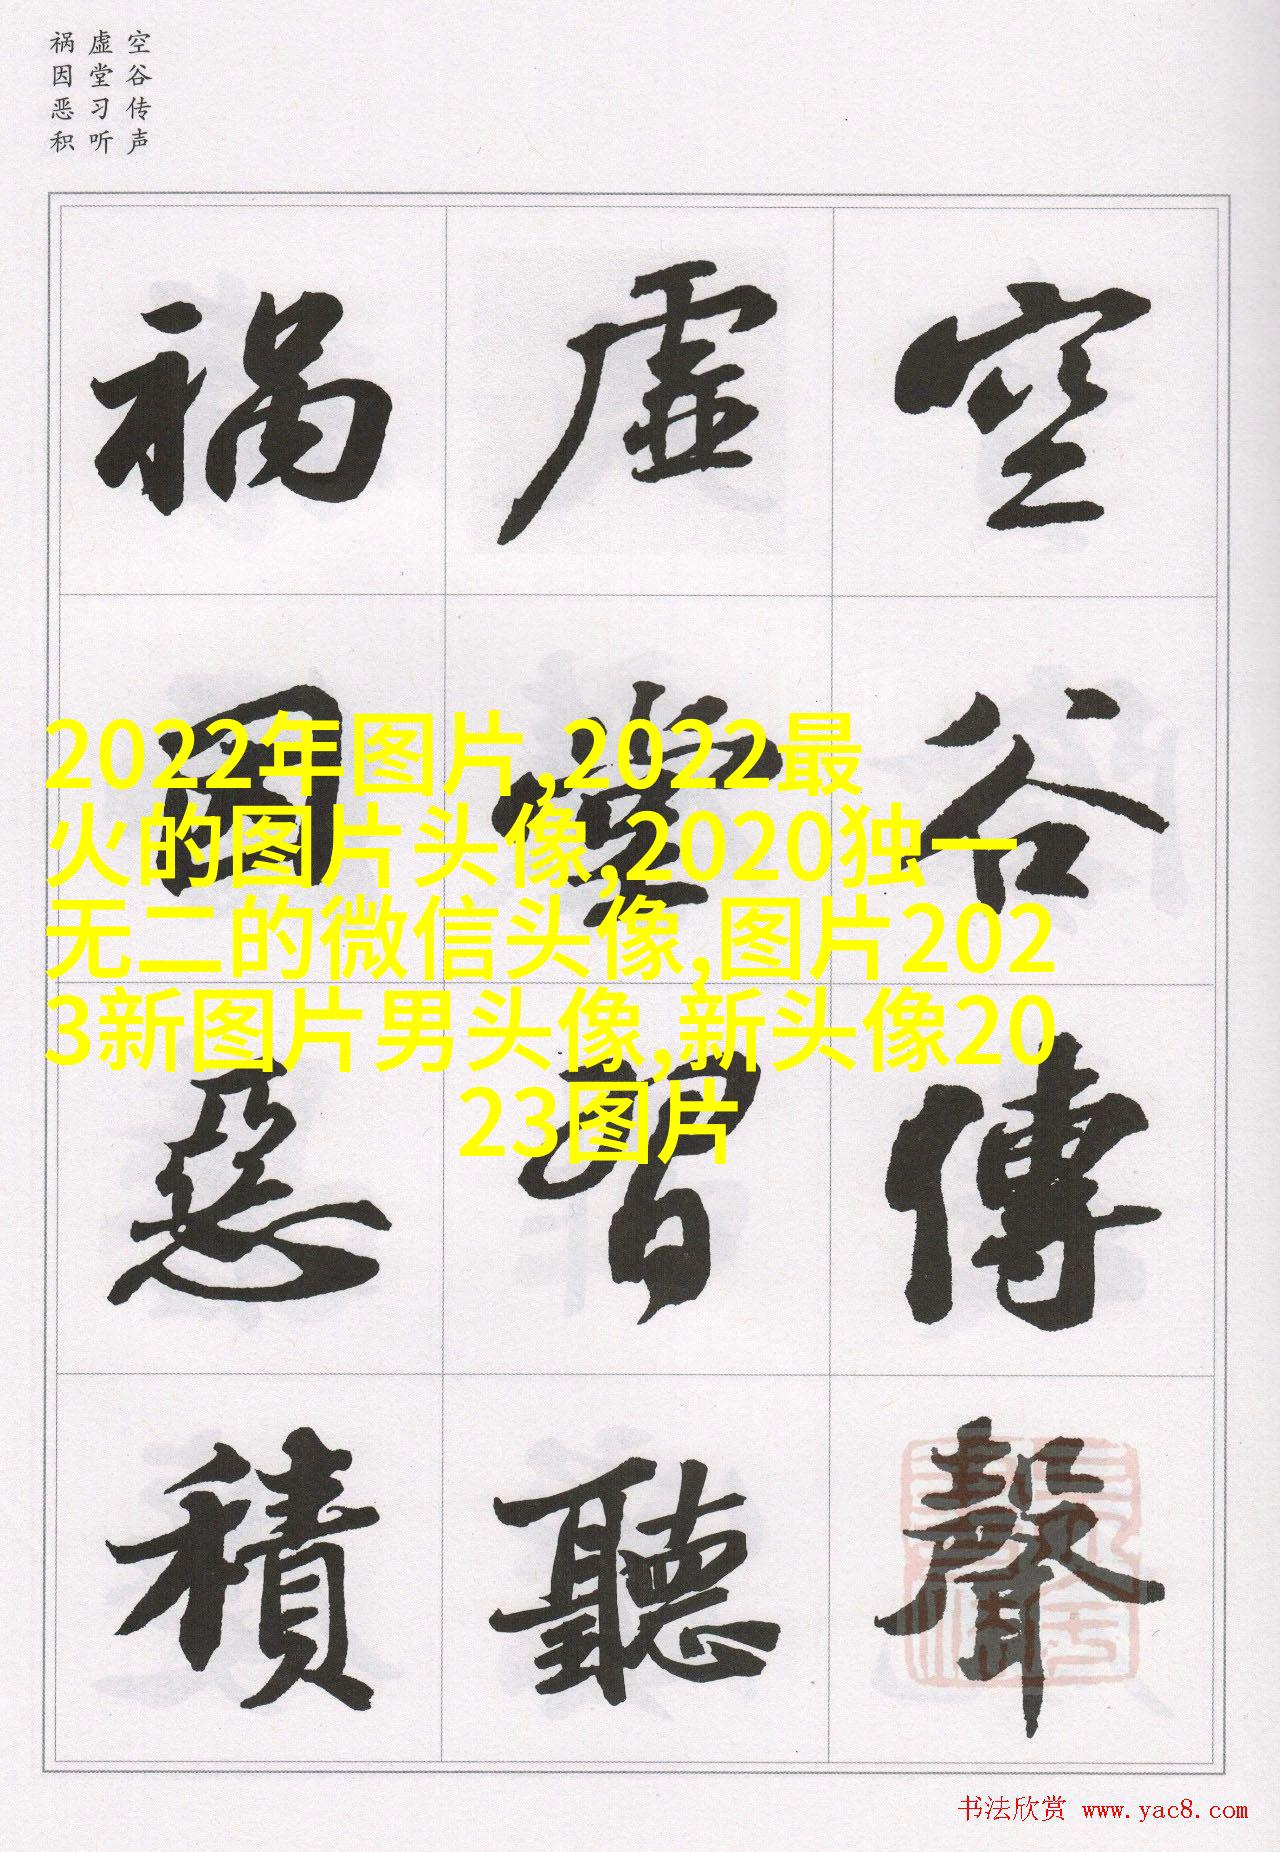 空谷传声
虚堂习听
祸因恶积
空谷傳聲
虛堂習聽
禍因惡積
2022年图片,2022最
火的图片头像,2020独一
无二的微信头像,图片202
3新图片男头像,新头像20
23图片
书法欣赏 www.yac8.com